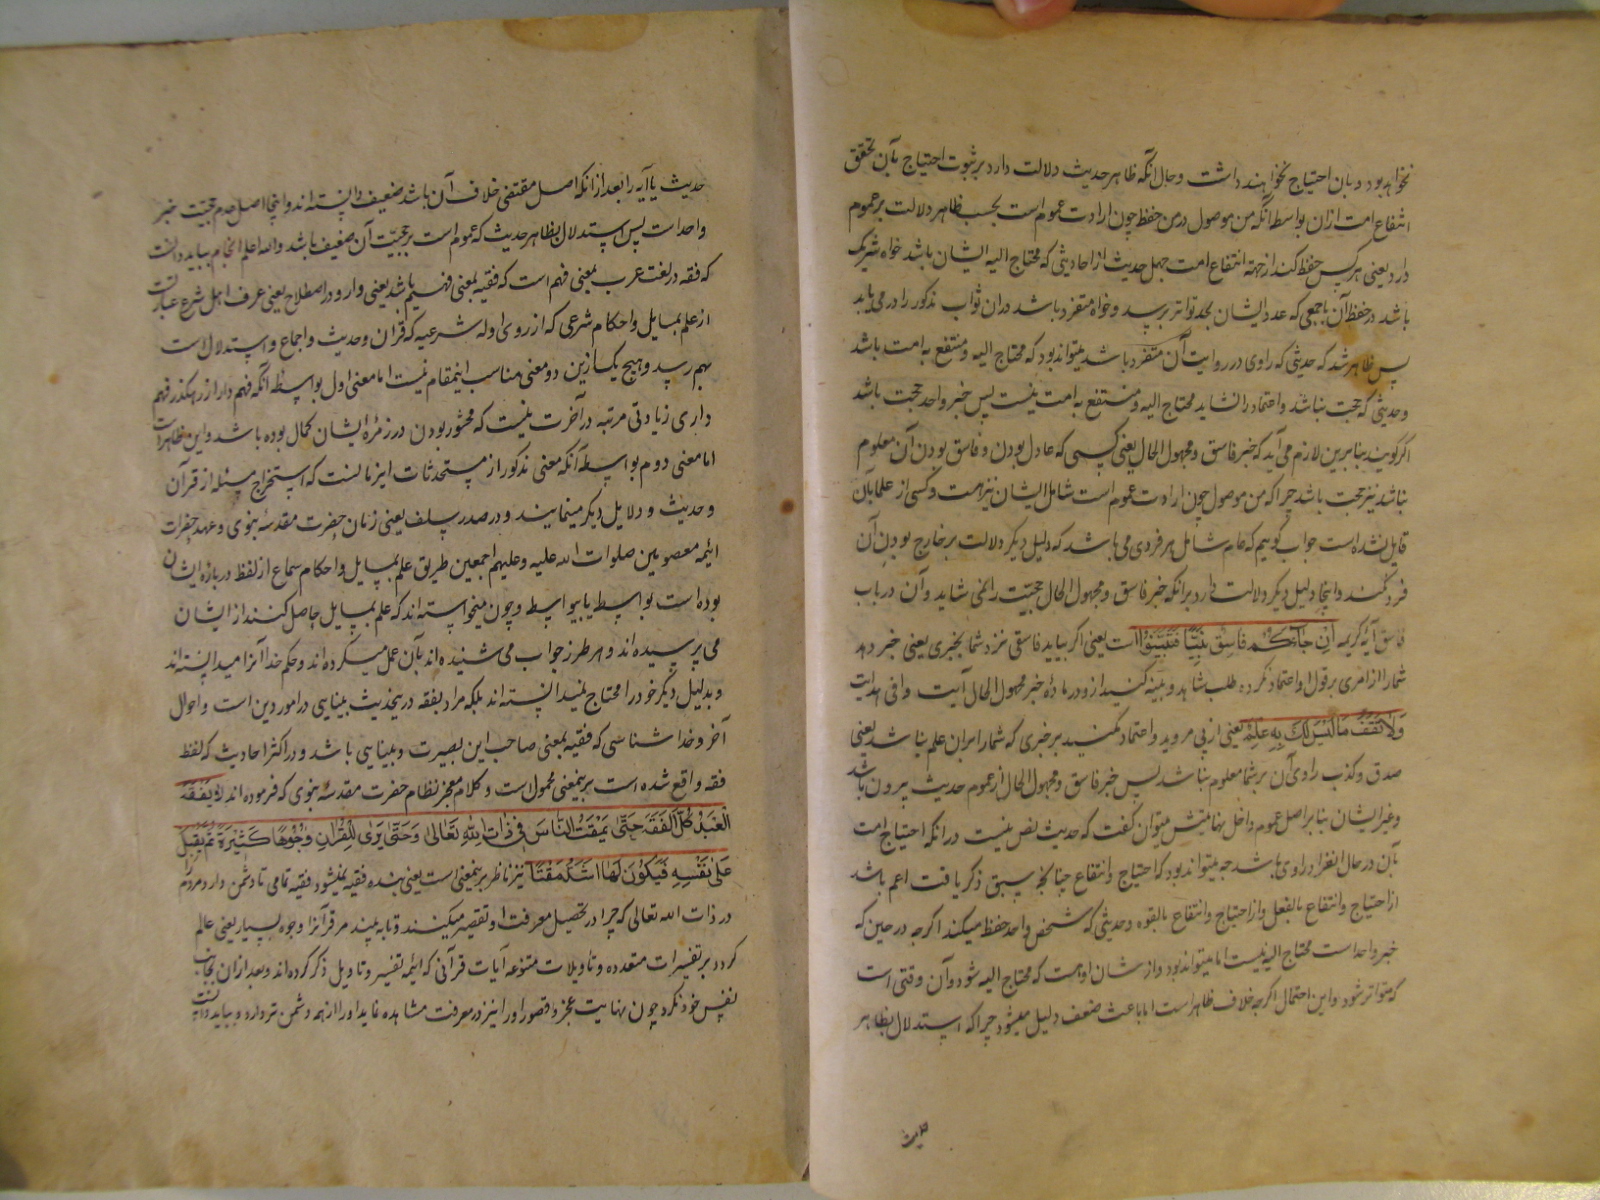 نخواهد بود و بان احتیاج نخواهند داشت و حال آنکه ظاهر حدیث دلالت دارد بر ثبوت احتیاج بآن و تحقق
انتفاع امت ازان بواسطه آنکه من موصول در من حفظ چون ارادت عموم است بحسب ظاهر دلالت بر عموم
دارد یعنی هر کس حفظ کند از جهة انتفاع امت چهل حدیث از احادیثی که محتاج الیه ایشان باشد خواه شریک
باشد در حفظ آن باجمعی که عدد ایشان بحد تواتر برسد و خواه متفرد باشد دران ثواب مذکور را در می یابد
پس ظاهر شد که حدیثی که راوی در روایت آن متفرد باشد میتواند بود که محتاج الیه و منتفع به امت باشد
و حدیثی که حجت نباشد و اعتماد را نشاید محتاج الیه و منتفع به امت نیست پس خبر واحد حجت باشد
اگر گویند بنابرین لازم می آید که خبر فاسق و مجهول الحال یعنی کسی که عادل بودن و فاسق بودن آن معلوم
نباشد نیز حجت باشد چرا که من موصول چون ارادت عموم است شامل ایشان نیز هست و کسی از علما بآن
قایل نشده است جواب گوییم که عام شامل هر فردی می باشد که دلیل دیگر دلالت بر خارج بودن آن
فرد نکند و اینجا دلیل دیگر دلالت دارد بر آنکه خبر فاسق و مجهول الحال حجیت را نمی شاید و آن در باب
فاسق آیه کریمه اِن جآءَکُم فاسِق بِنَبَإٍ فَتَبَیَّنُوا است یعنی اگر بیاید فاسقی نزد شما بخبری یعنی خبر دهد
شما را از امری بر قول او اعتماد نکرده طلب شاهد و بینه کنید ازو و در ماده خبر مجهول الحال آیت وافی هدایت
وَلا تَقفُ ما لَیسَ لَکَ بِهِ عِلمٌ یعنی از پی مروید و اعتماد مکنید بر خبری که شما را بران علم نباشد یعنی
صدق و کذب راوی آن بر شما معلوم نباشد پس خبر فاسق و مجهول الحال از عموم حدیث بیرون باشد
و غیر ایشان بنابر اصل عموم داخل نهایتش میتوان گفت که حدیث نص نیست در آنکه احتیاج امت
بآن در حال انفراد راوی باشد چه میتواند بود که احتیاج و انتفاع چنانچه سبق ذکر یافت اعم باشد
از احتیاج و انتفاع بالفعل و از احتیاج و انتفاع بالقوه و حدیثی که شخص واحد حفظ میکند اگرچه در حین که
خبر واحد است محتاج الیه نیست اما میتواند بود و از شان او هست که محتاج الیه شود و آن وقتی است
که متواتر شود و این احتمال اگرچه خلاف ظاهر است اما باعث ضعف دلیل میشود چرا که استدلال بظاهر
حدیث یا آیه را بعد از آنکه اصل مقتضی خلاف آن باشد ضعیف دانسته اند و اینجا اصل عدم حجیت خبر
واحد است پس استدلال بظاهر حدیث که عموم است بر حجیت آن ضعیف باشد والله اعلم انجام بباید دانست
که فقه در لغت عرب بمعنی فهم است که فقیه بمعنی فهیم باشد یعنی و در اصطلاح یعنی عرف اهل شرع عبارت
از علم بمسایل و احکام شرعی که از روی ادله شرعیه که قران و حدیث و اجماع و استدلال است
بهم رسد و هیچ یک ازین دو معنی مناسب اینمقام نیست اما معنی اول بواسطه آنکه فهم دار از رهگذر فهم
داری زیادتی مرتبه در آخرت نیست که محشور بودن در زمرهٔ ایشان کمال بوده باشد و این ظاهر است
اما معنی دوم بواسطه آنکه معنی مذکور از مستحدثات این زمانست که استخراج مسئله از قرآن
و حدیث و دلایل دیگر مینمایند و در صدر سلف یعنی زمان حضرت مقدسه نبوی و عهد حضرات
ایمه معصومین صلوات الله علیه و علیهم اجمعین طریق علم بمسایل و احکام سماع از لفظ درباره ایشان
بوده است بواسطه یا بیواسطه و چون میخواسته اند که علم بمسایل حاصل کنند از ایشان
می پرسیده اند و هر طرز جواب می شنیده اند بآن عمل میکرده اند و حکم خدا آنرا میدانسته اند
و بدلیل دیگر خود را محتاج نمیدانسته اند بلکه مراد بفقه درینحدیث بینایی در امور دین است و احوال
آخر و خدا شناسی که فقیه بمعنی صاحب این بصیرت و بینایی باشد و در اکثر احادیث که لفظ
فقه واقع شده است برینمعنی محمول است و کلام معجز نظام حضرت مقدسه نبوی که فرموده اند لا یَفقَهُ
العَبدُ کُلَّ الفِقهِ حَتّی یَمقُتَ النّاسَ فی ذاتِ اللهِ تَعالی وَحَتّی یَری لِلقُرانِ وُجُوهًا کَثیرَةً ثُمَّ یُقبِلَ
عَلی نَفسِهِ فَیَکُونَ لَها اَشَدَّ مَقتًا نیز ناظر برینمعنی است یعنی بنده فقیه نمیشود فقیه تمامی تا دشمن دارد مردم را
در ذات الله تعالی که چرا در تحصیل معرفت او تقصیر میکنند و تا به بیند مر قرآنرا وجوه بسیار یعنی عالم
گردد بر تفسیرات متعدده و تاویلات متنوعه آیات قرآنی که ائمه تفسیر و تاویل ذکر کرده اند و بعد ازان بجانب
نفس خود نگرد چون نهایت عجز و قصور او را نیز در معرفت مشاهده نماید او را از همه دشمن تر دارد و بباید دانست